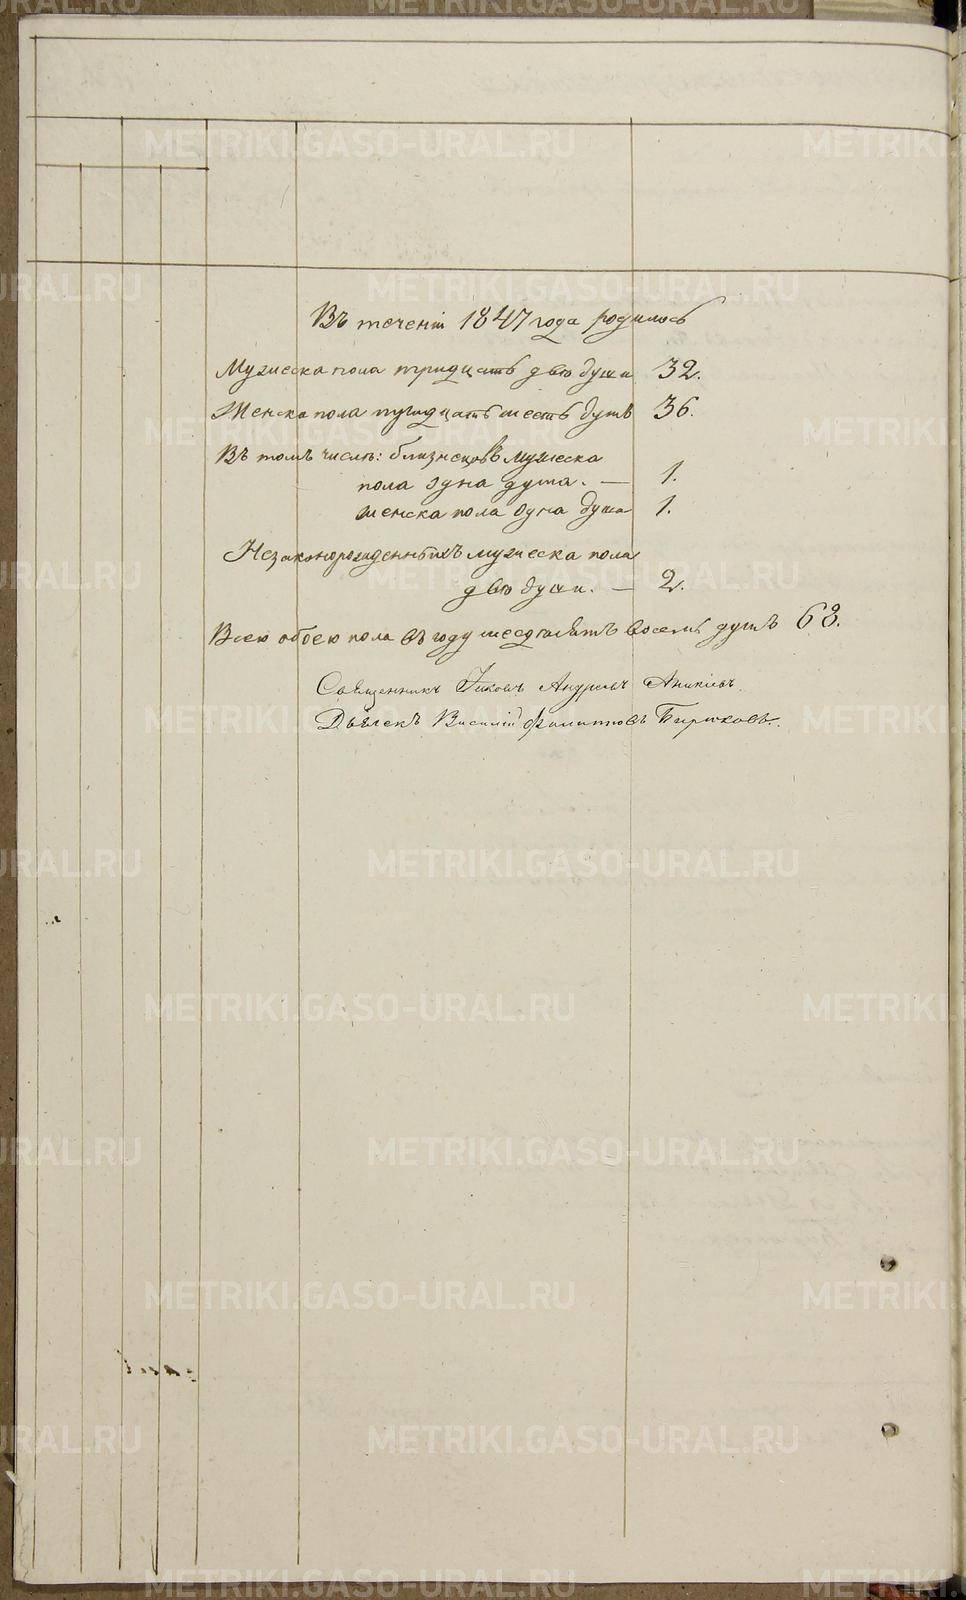 Въ теченіи 1847 года родилось
Мужеска пола тридцать двѣ души 32.
Женска пола тридцать шесть душъ 36.
Въ томъ числѣ: близнецовъ мужеска
пола одна душа. — 1.
женска пола одна душа 1.
Незаконорожденныхъ мужеска пола
двѣ души. — 2.
Всею обоею пола въ году шесдесятъ восемь душъ 68.
Священникъ Іаковъ Андреевъ
Дьячекъ Василій Филиповъ Бирюковъ.
METRIKI.GASO-URAL.RU